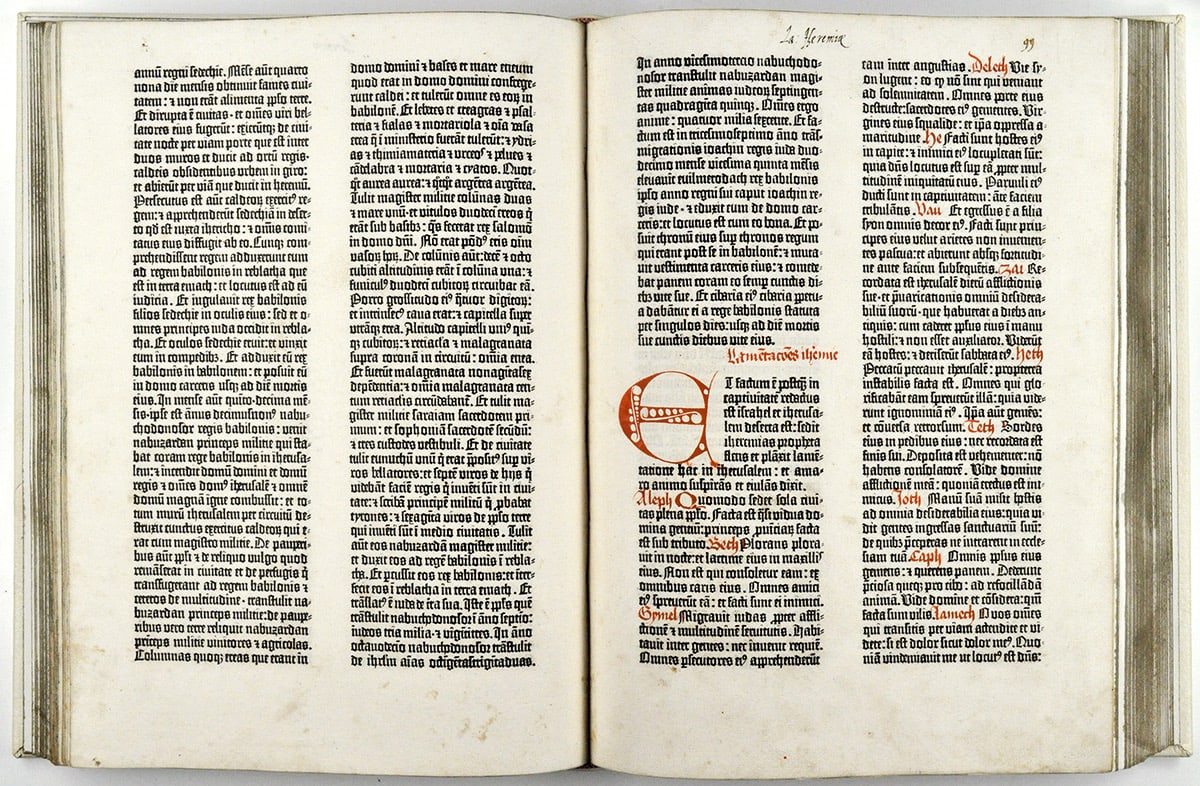 annū regni sedechie. Mēse aūt quarto
nona die mensis obtinuit fames civi-
tatem: ⁊ non erāt alimenta pp̄lo terre.
Et dirupta ē civitas · et om̄es viri bel-
latores eius fugerūt: exierūtqȝ de civi-
tate nocte per viam porte que est inter
duos muros et ducit ad ortū regis·
caldeis obsidentibus urbem in giro:
et abierūt per viā que ducit in heremū.
Persecutus est aūt caldeoȝ exercit⁹ re-
gem: ⁊ apprehenderūt sedechiā in deser-
to qd̄ est iuxta ihericho: ⁊ om̄is comi-
tatus eius diffugit ab eo. Cunqȝ com-
prehendissent regem adduxerunt eum
ad regem babilonis in reblatha que
est in terra emath: et locutus est ad eū
iudicia. Et iugulavit rex babilonis
filios sedechie in oculis eius: sed et o-
mnes principes iuda occidit in rebla-
tha. Et oculos sedechie eruit: et vinxit
eum in compedibȝ. Et adduxit eū rex
babilonis in babilonem: et posuit eū
in domo carceris usqȝ ad diē mortis
eius. In mense aūt quīto· decima mē-
sis· ipse est ānus decimusnon⁹ nabu-
chodonosor regis babilonis: venit
nabuzardan princeps milicie qui sta-
bat coram rege babilonis in iherusa-
lem: ⁊ incendit domū domini et domū
regis ⁊ om̄es domo s iherusalē ⁊ omnē
domū magnā igne combussit: et to-
tum murū iherusalem per circuitū de-
struxit cunctus exercitus caldeoȝ qui e-
rat cum magistro milicie. De pauperi-
bus aūt pp̄li ⁊ de reliquo vulgo quod
remāserat in civitate et de perfugis q̄
transfugerant ad regem babilonis ⁊
ceteros de multitudine· transtulit na-
buzardan princeps milicie: de paupe-
ribus vero terre reliquit nabuzardan
prīceps milicie vinitores ⁊ agricolas.
Columnas quoqȝ ereas que erant in
domo domini ⁊ bases et mare eneum
quod erat in domo domini confrege-
runt caldei: et tulerūt omne es eoȝ in
babilonē. Et lebetes et creagras ⁊ psal-
teria ⁊ fialas ⁊ mortariola ⁊ oīa vasa
erea q̄ ī ministerio fuerāt tulerūt: ⁊ ydri-
as ⁊ thimiamateria ⁊ urceos ⁊ pelues ⁊
cādelabra ⁊ mortaria ⁊ cyatos. Quot-
q̄t aurea aurea: ⁊ q̄tq̄t argētea argētea.
Tulit magister milicie colūnas duas
⁊ mare unū· et vitulos duodeci ereos q̄
erāt sub basibȝ: q̄s fecerat rex salomō
in domo dn̄i. Nō erat pōd⁹ eris oīm
vasoȝ hoȝ. De colūnis aūt: decē ⁊ octo
cubiti altitudinis erāt ī colūna una: ⁊
funicul⁹ duodeci cubitoȝ circuibat eā.
Porro grossitudo ei⁹ q̄tuor digitoȝ:
et intrinsec⁹ cava erat: ⁊ capitella super
utrāqȝ erea. Altitudo capitelli uni⁹ quī-
qȝ cubitoȝ: ⁊ retiacla ⁊ malogranata
supra coronā in circuitu: omīa erea.
Et fuerūt malogranata nonagītasex
depēdentia: ⁊ omīa malogranata cen-
tum retiaclis circūdabant. Et tulit ma-
gister milicie saraiam sacerdotem pri-
mum: et sophoniā sacerdotē secūdū:
⁊ tres custodes vestibuli. Et de civitate
tulit eunuchū unū q̄ erat p̄posit⁹ sup̄ vi-
ros bellatores: et septē viros de hijs q̄
videbāt faciē regis q̄ invēti sūt in civi-
tate: ⁊ scribā principē militū q̄ probabat
tyrones: ⁊ sexagīta viros de pp̄lo terre
qui invēti sūt ī medio civitatis. Tulit
aūt eos nabuzardā magister milicie:
et duxit eos ad regē babilonis ī rebla-
tha. Et percussit eos rex babilonis: et inter-
fecit eos ī reblatha in terra emath. Et
trāslat⁹ ē iuda de terra sua. Iste ē pp̄ls quē
trāstulit nabuchodonosor: ī āno septīo:
iudeos tria milia· ⁊ vigītitres. In āno
octavodecīo nabuchodonosor trāstulit
de ihrlm aīas octīgētastrigītaduas.
La: Jeremiæ
99
In anno vicesimotercio nabuchodo-
nosor transtulit nabuzardan magi-
ster milicie animas iudeoȝ septingen-
tas quadraginta quinqȝ. Om̄es ergo
anime: quatuor milia sexcente. Et fa-
ctum est in tricesimoseptimo āno trās-
migrationis ioachin regis iuda duo-
decimo mense vicesima quinta mēsis
elevavit euilmerodach rex babilonis
ipso anno regni sui caput ioachin re-
gis iude · ⁊ eduxit eum de domo car-
ceris: et locutus est cum eo bona. Et po-
suit thronū eius sup̄ thronos regum
qui erant post se in babilone: ⁊ muta-
vit vestimenta carceris eius: ⁊ comede-
bat panem coram eo semp̄ cunctis di-
ebȝ vite sue. Et cibaria ei⁹ cibaria ꝑpetu-
a dabātur ei a rege babilonis statuta
per singulos dies: usqȝ ad diē mortis
sue cunctis diebus vite eius.
Lamētacōes ihēmie
Et factum ē postqȝ in
captivitatē redactus
est israhel et iherusa-
lem deserta est: sedit
iheremias propheta
flens et plāxit lamē-
tatione hac in iherusalem: et ama-
ro animo suspirās et eiulās dixit.
Aleph Quomodo sedet sola civi-
tas plena pp̄lo. Facta est q̄si vidua do-
mina gentiū: princeps ꝓvinciaȝ facta
est sub tributo Beth Plorans plora-
vit in nocte: et lacrime eius in maxillis
eius. Non est qui consoletur eam: ex
omnibus caris eius. Omnes amici
ei⁹ spreverūt eā: et facti sunt ei inimici.
Gymel Migravit iudas ꝓpter affli-
ctionē ⁊ multitudinē servitutis. Habi-
tavit inter gentes: nec invenit requiē.
Omnes ꝑsecutores ei⁹ apprehenderūt
eam inter angustias. Deleth Vie sy-
on lugent: eo q̄ nō sint qui veniant
ad solemnitatem. Omnes porte eius
destructe: sacerdotes ei⁹ gementes. Vir-
gines eius squalide: et ip̄a oppressa a-
maritudine He Facti sunt hostes ei⁹
in capite: ⁊ inimici ei⁹ locupletati sūt:
quia dn̄s locutus est sup̄ eā ꝓpter mul-
titudinē iniquitatū eius. Parvuli ei⁹
ducti sunt in captivitatem: āte faciem
tribulātis. Vau Et egressus ē a filia
syon omnis decor ei⁹. Facti sunt prin-
cipes eius velut arietes non invenien-
tes pascua: et abierunt absqȝ fortitudi-
ne ante faciem subsequētis. Zai Re-
cordata est iherusalē dierū afflictionis
sue· et p̄varicationis omniū desidera-
biliū suorū· que habuerat a diebȝ an-
tiquis: cum caderet pp̄ls eius ī manu
hostili: ⁊ non esset auxiliator. Viderūt
eā hostes: ⁊ deriserūt sabbata ei⁹. Heth
Peccatū peccavit iherusalē: propterea
instabilis facta est. Omnes qui glo-
rificabāt eam spreverūt illā: quia vide-
runt ignominiā ei⁹. Ip̄a aūt gemēs:
et cōversa retrorsum. Teth Sordes
eius in pedibus eius: nec recordata est
finis sui. Deposita est vehementer: nō
habens consolatorē. Vide domine
afflictionē meā: quoniā erectus est ini-
micus. Joth Manū suā misit hostis
ad omnia desiderabilia eius: quia vi-
dit gentes ingressas sanctuariū suū:
de quibȝ p̄ceperas ne intrarent in eccle-
siam tuā Caph Omnis pp̄lus eius
gemens: ⁊ querens panem. Dederunt
preciosa queqȝ pro cibo: ad refocillādā
animā. Vide domine et cōsidera: qm̄
facta sum vilis. Lamech O vos om̄es
qui transitis per viam attendite et vi-
dete: si est dolor sicut dolor me⁹. Quo-
niā vindemiavit me ut locut⁹ est dn̄s: